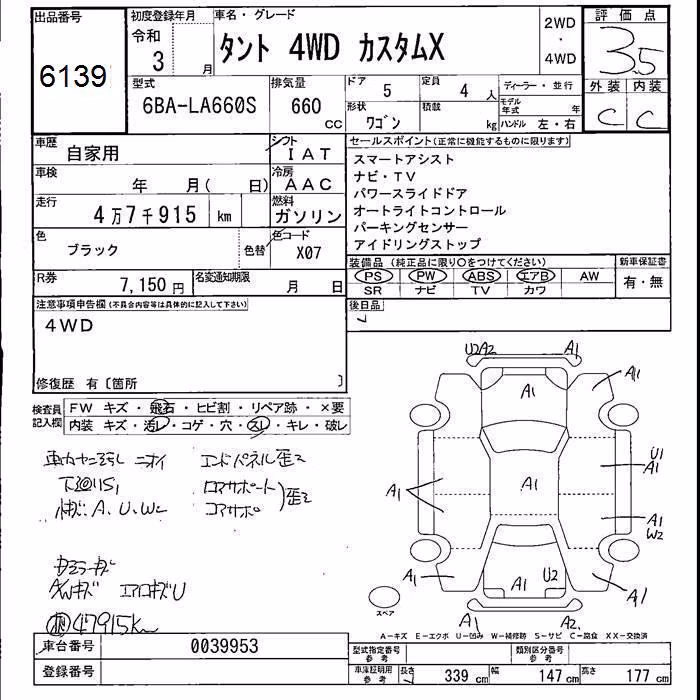 出品番号
6139
初度登録年月
令和
3 月
車名・グレード
タント 4WD カスタムX
2WD
・
4WD
評価点
3.5
外装 内装
C C
型式
6BA-LA660S
排気量
660 cc
ドア 5
定員 4 人
ディーラー・並行
形状
ワゴン
積載 kg
モデル年式 年
ハンドル 左・右
車歴
自家用
シフト
IAT
車検
年 月( 日)
冷房
AAC
走行
4万7千915 km
燃料
ガソリン
色
ブラック
色替
色コード
X07
R券
7,150 円
名変通知期限
月 日
セールスポイント(正常に機能するものに限ります)
スマートアシスト
ナビ・TV
パワースライドドア
オートライトコントロール
パーキングセンサー
アイドリングストップ
装備品 (純正品に限り○をつけてください)
PS PW ABS エアB AW
SR ナビ TV カワ
新車保証書
有・無
注意事項申告欄(不具合内容等は具体的に記入して下さい)
4WD
修復歴 有〔箇所 〕
後日品
検査員記入欄
FW キズ・飛石・ヒビ割・リペア跡・×要
内装 キズ・汚レ・コゲ・穴・スレ・キレ・破レ
ニオイ エンドパネル歪
コアサポート
コアサポ 歪
A、U、W2
キズ
エアロキズU
47915km
U2 A2 A1
A1 A1
A1
U1
A1 A1 A1
A1
W2
A1 A1 U2 A1
A1 A2
スペア
A-キズ E-エクボ U-凹み W-補修跡 S-サビ C-腐食 XX-交換済
車台番号 0039953
登録番号
型式指定番号
参考
類別区分番号
参考
車庫証明用
参考
長さ 339 cm 幅 147 cm 高さ 177 cm